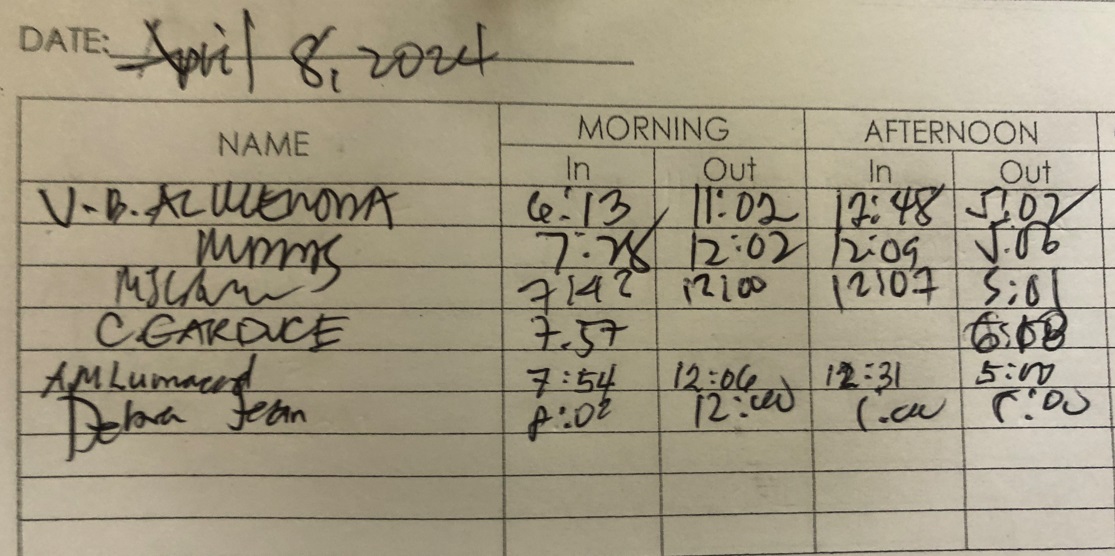 DATE: April 8, 2024
NAME MORNING AFTERNOON
In Out In Out
V.B. 6:13 11:02 12:48 5:02
7:28 12:02 12:09 5:06
7:42 12:00 12:07 5:01
C.GARDUCE 7.57
AM Lumacad 7:54 12:06 12:31 5:00
Debra Jean 8:02 12:00 1:00 5:00